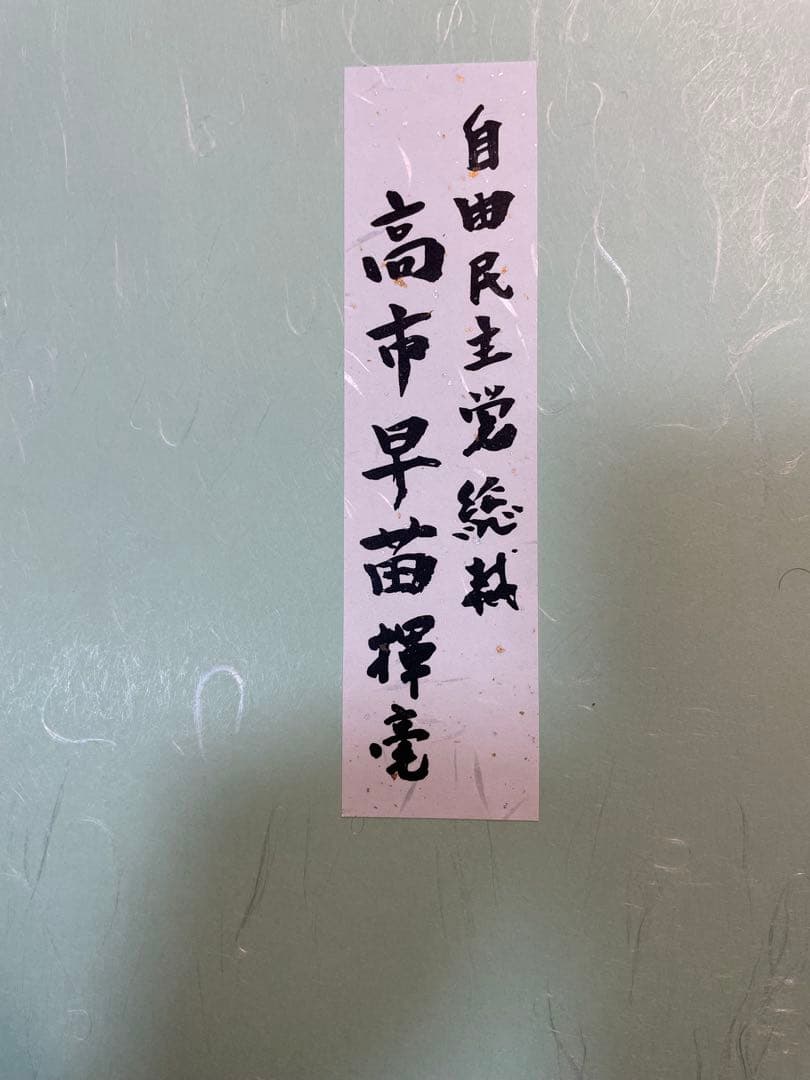 自由民主党総裁
高市早苗揮毫